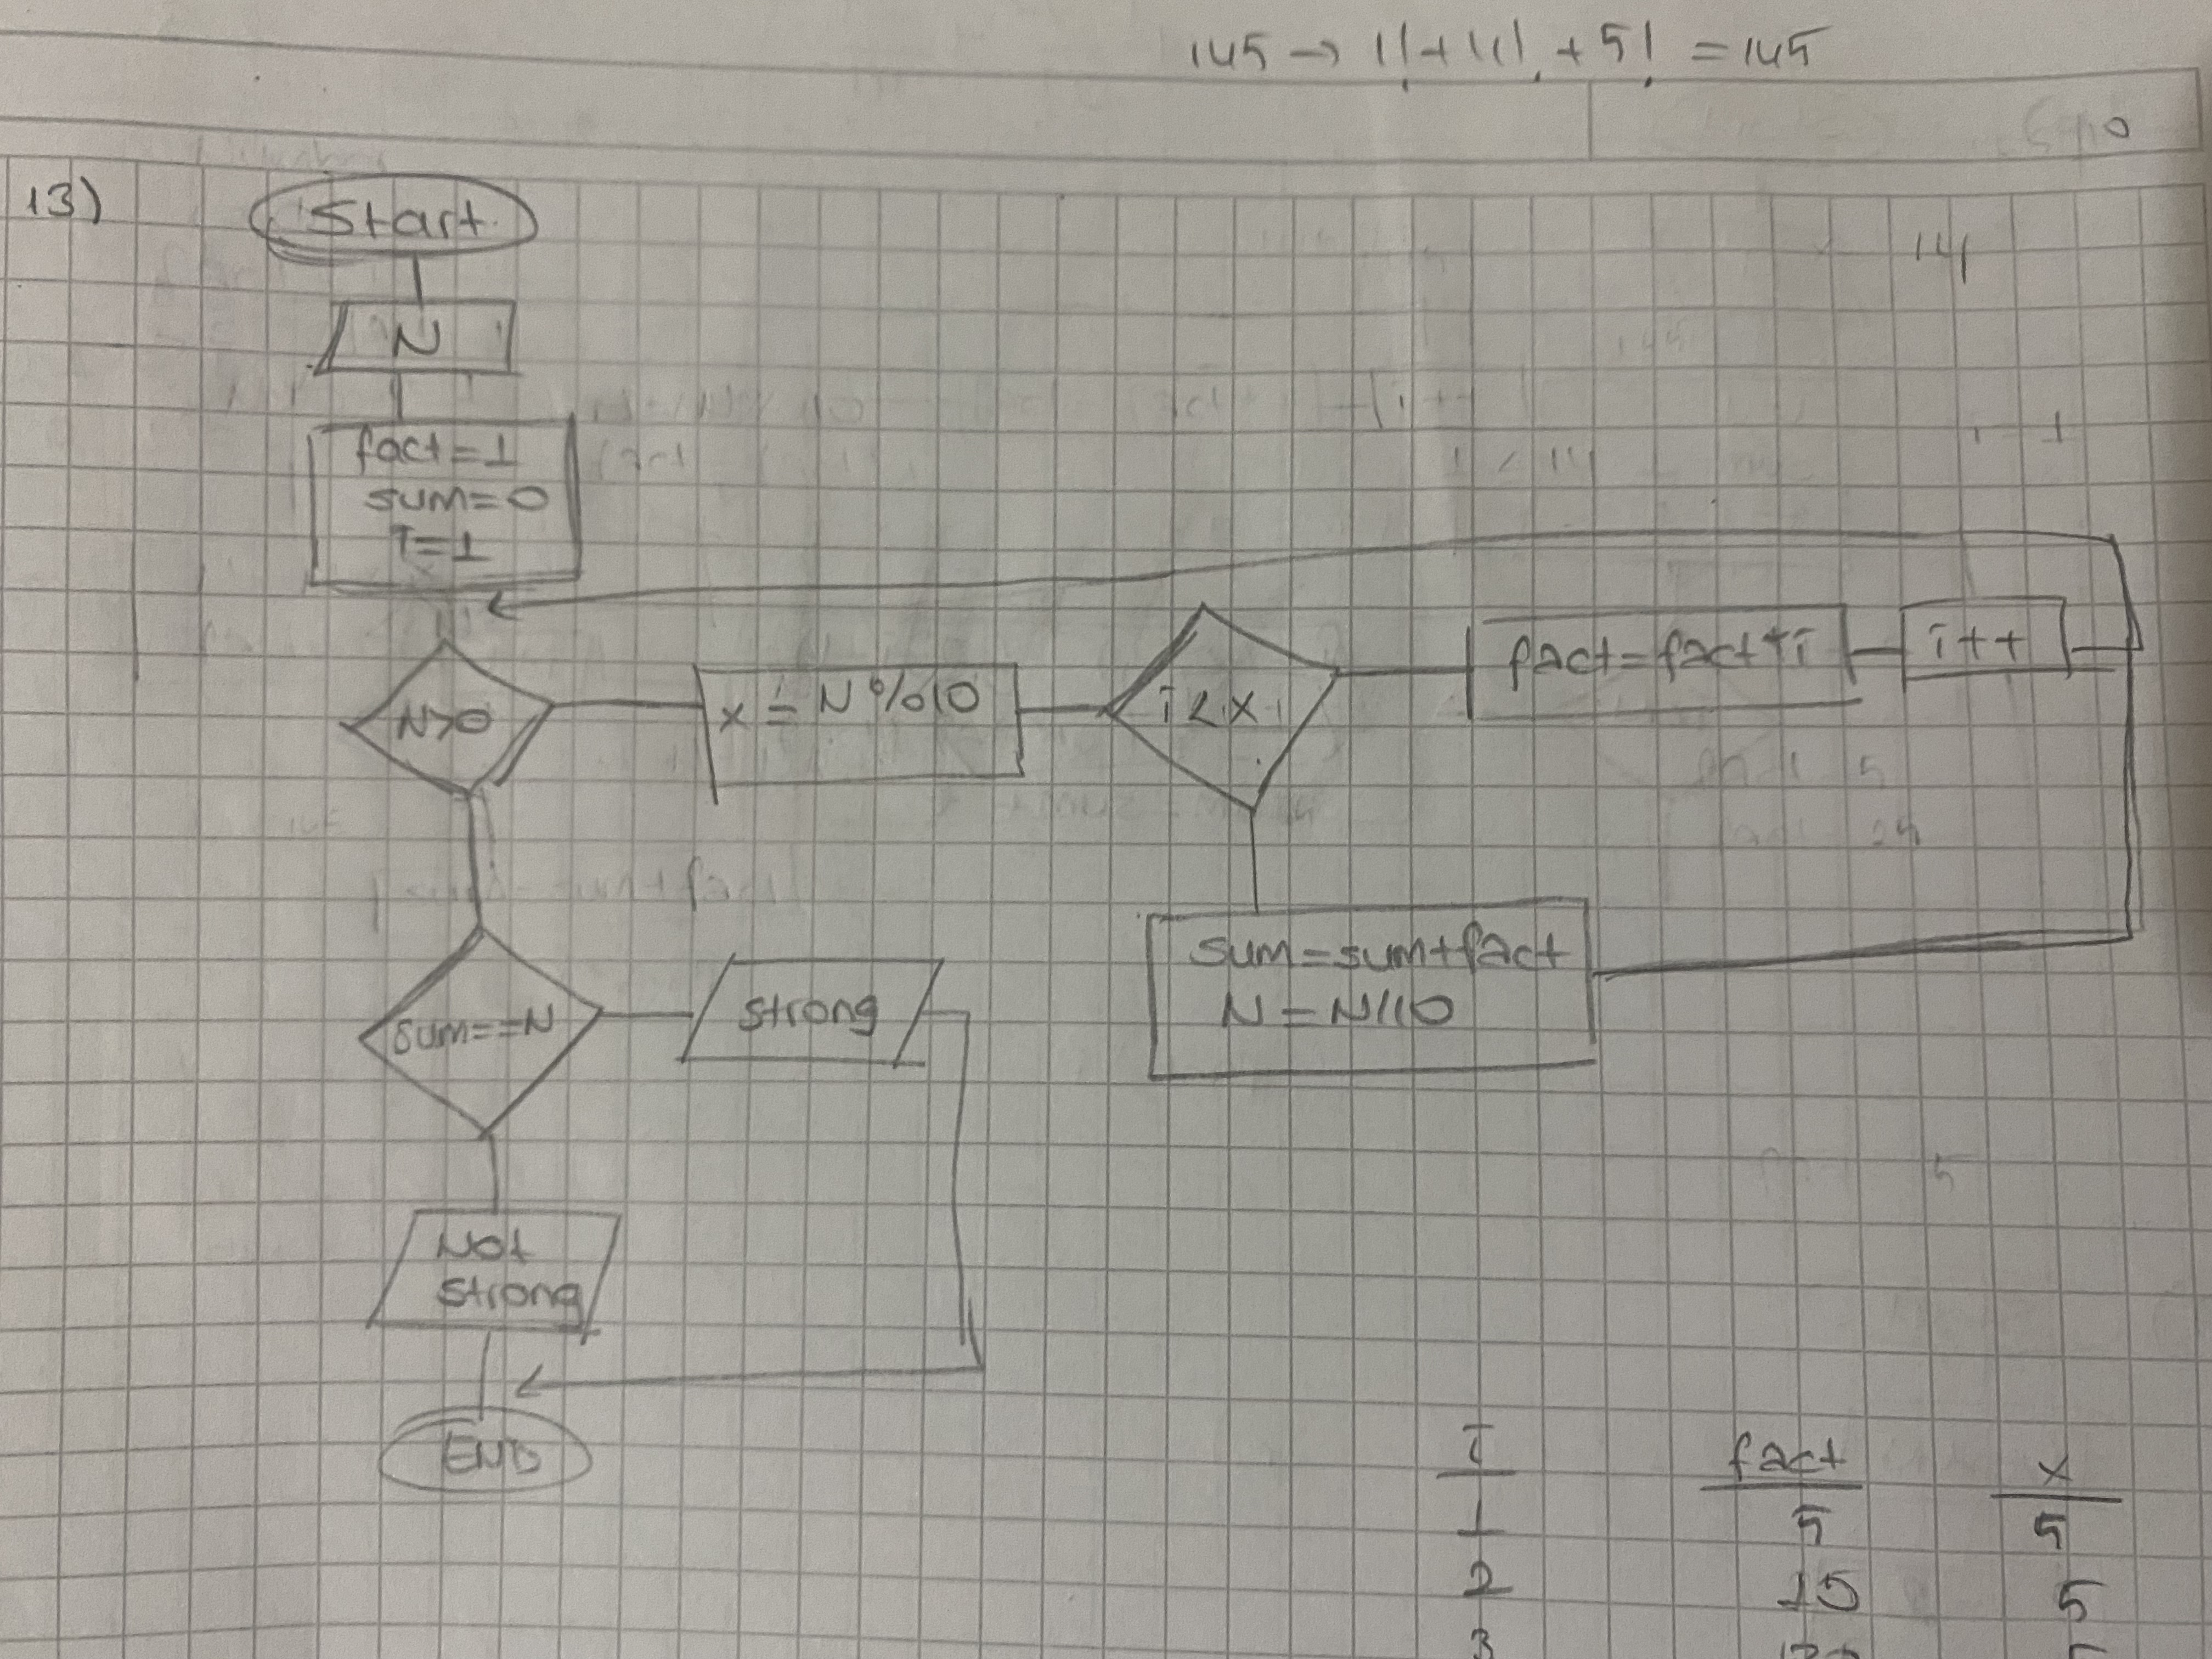 145 → 1! + 4! + 5! = 145
13)
Start
N
fact=1
sum=0
i=1
N>0
x = N%10
i<x
fact=fact*i
i++
sum=sum+fact
N=N//10
sum==N
strong
Not
strong
END
i fact x
1 5 5
2 15 5
3